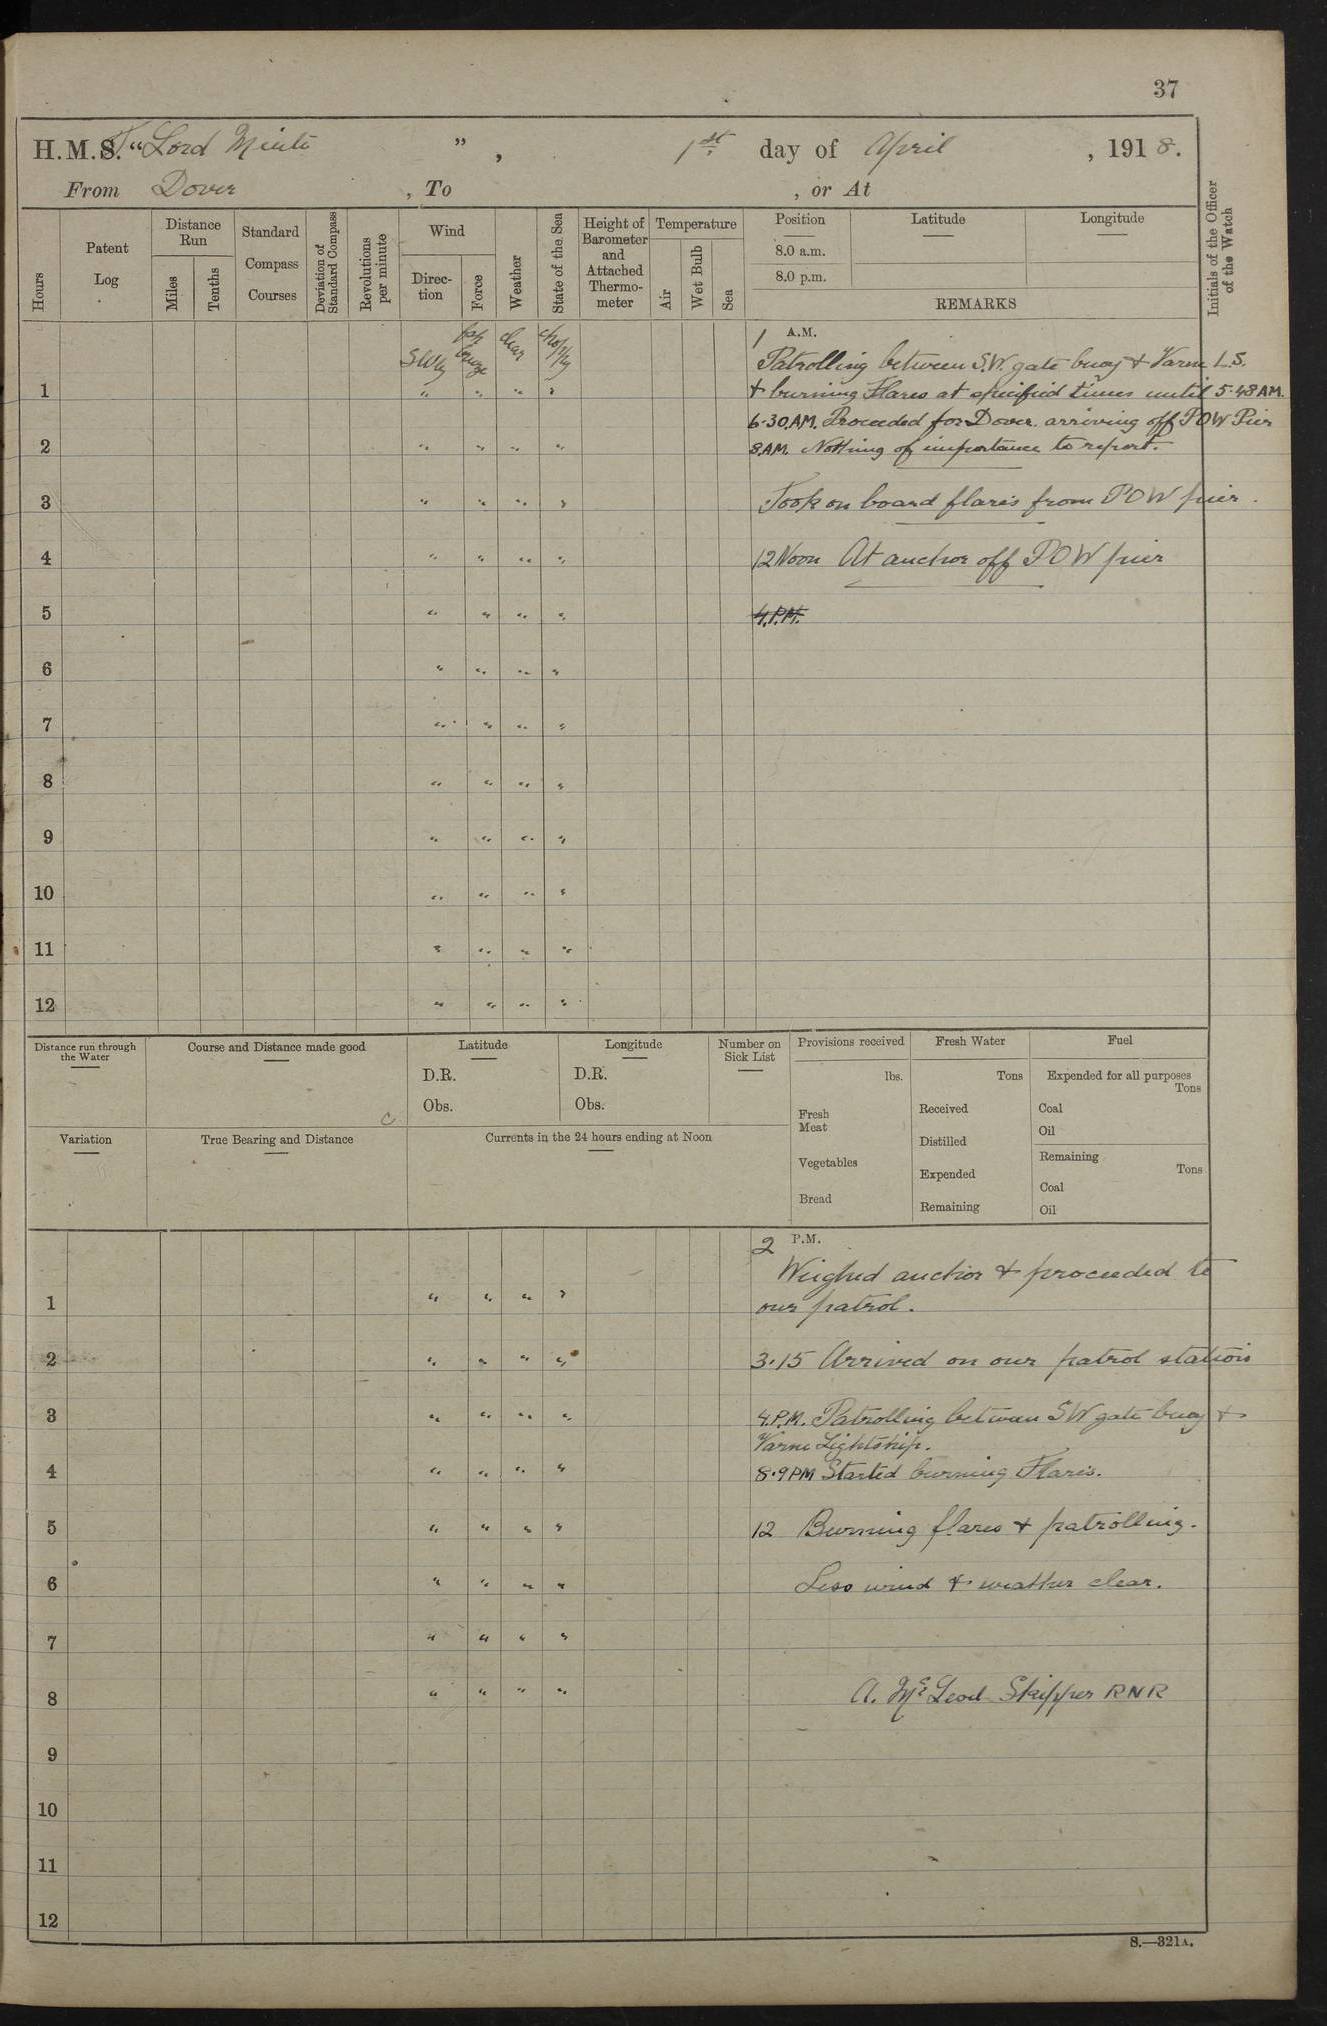 37
H.M.S. T "Lord Minto", 1st. day of April, 1918.
From Dover, To , or At
Hours
Patent Log
Distance Run
Miles
Tenths
Standard Compass Courses
Deviation of Standard Compass
Revolutions per minute
Wind
Direction
Force
Weather
State of the Sea
Height of Barometer and Attached Thermometer
Temperature
Air
Wet Bulb
Sea
Position
8.0 a.m.
8.0 p.m.
Latitude
Longitude
REMARKS
Initials of the Officer of the Watch
SWly fsh breeze clear choppy
1 A.M.
Patrolling between S.W. gate buoy & Varne L.S.
1 " " " " & burning Flares at specified times until 5-48 AM.
6-30.AM. Proceeded for Dover. arriving off POW Pier
2 " " " " 8.AM. Nothing of importance to report.
3 " " " " Took on board flares from POW pier.
4 " " " " 12 Noon At anchor off POW pier
5 " " " " 4.P.M.
6 " " " "
7 " " " "
8 " " " "
9 " " " "
10 " " " "
11 " " " "
12 " " " "
Distance run through the Water
Course and Distance made good
Latitude
D.R.
Obs.
Longitude
D.R.
Obs.
Number on Sick List
Provisions received
lbs.
Fresh Meat
Vegetables
Bread
Fresh Water
Tons
Received
Distilled
Expended
Remaining
Fuel
Expended for all purposes
Tons
Coal
Oil
Remaining
Tons
Coal
Oil
Variation
True Bearing and Distance
Currents in the 24 hours ending at Noon
2 P.M.
Weighed anchor & proceeded to
1 " " " " our patrol.
2 " " " " 3.15 Arrived on our patrol station
3 " " " " 4.P.M. Patrolling between SW gate buoy &
Varne Lightship.
4 " " " " 8.9 PM Started burning Flares.
5 " " " " 12 Burning flares & patrolling.
6 " " " " Less wind & weather clear.
7 " " " "
8 " " " " A. McLeod Skipper RNR
9
10
11
12
S.—321A.